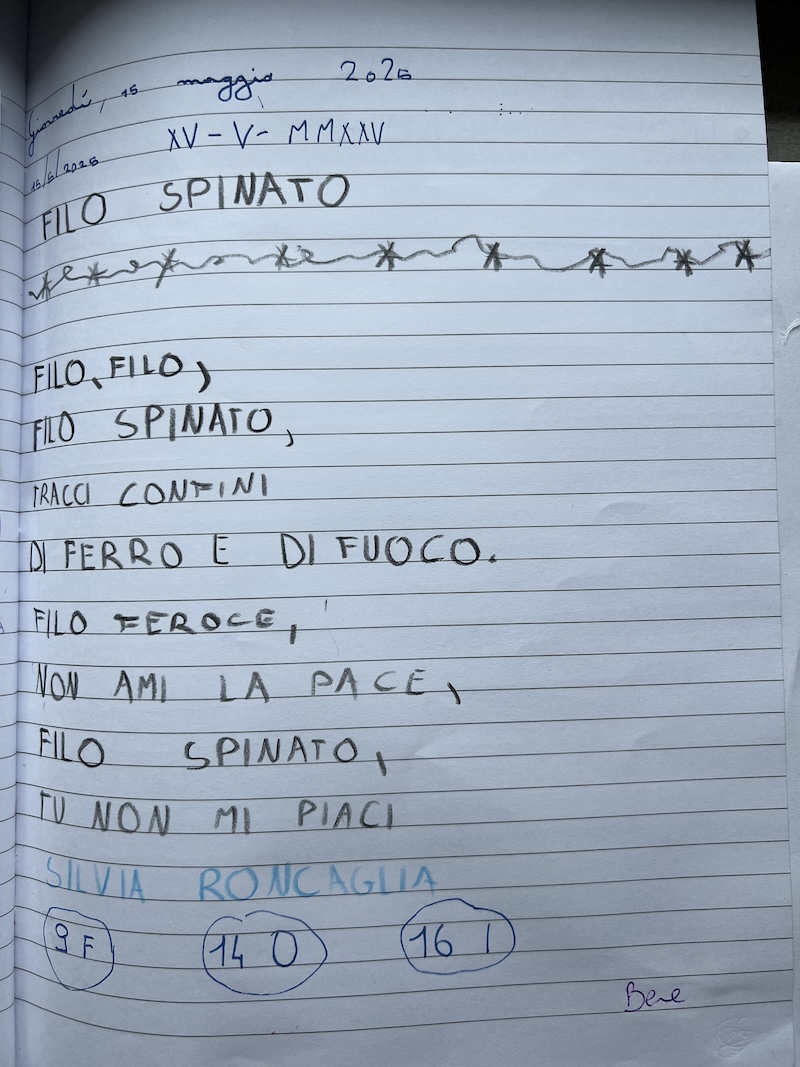 Giovedí, 15 maggio 2025
XV-V-MMXXV
15/5/2025
FILO SPINATO
FILO, FILO,
FILO SPINATO,
TRACCI CONFINI
DI FERRO E DI FUOCO.
FILO FEROCE,
NON AMI LA PACE,
FILO SPINATO,
TU NON MI PIACI
SILVIA RONCAGLIA
9 F 14 O 16 I
Bene